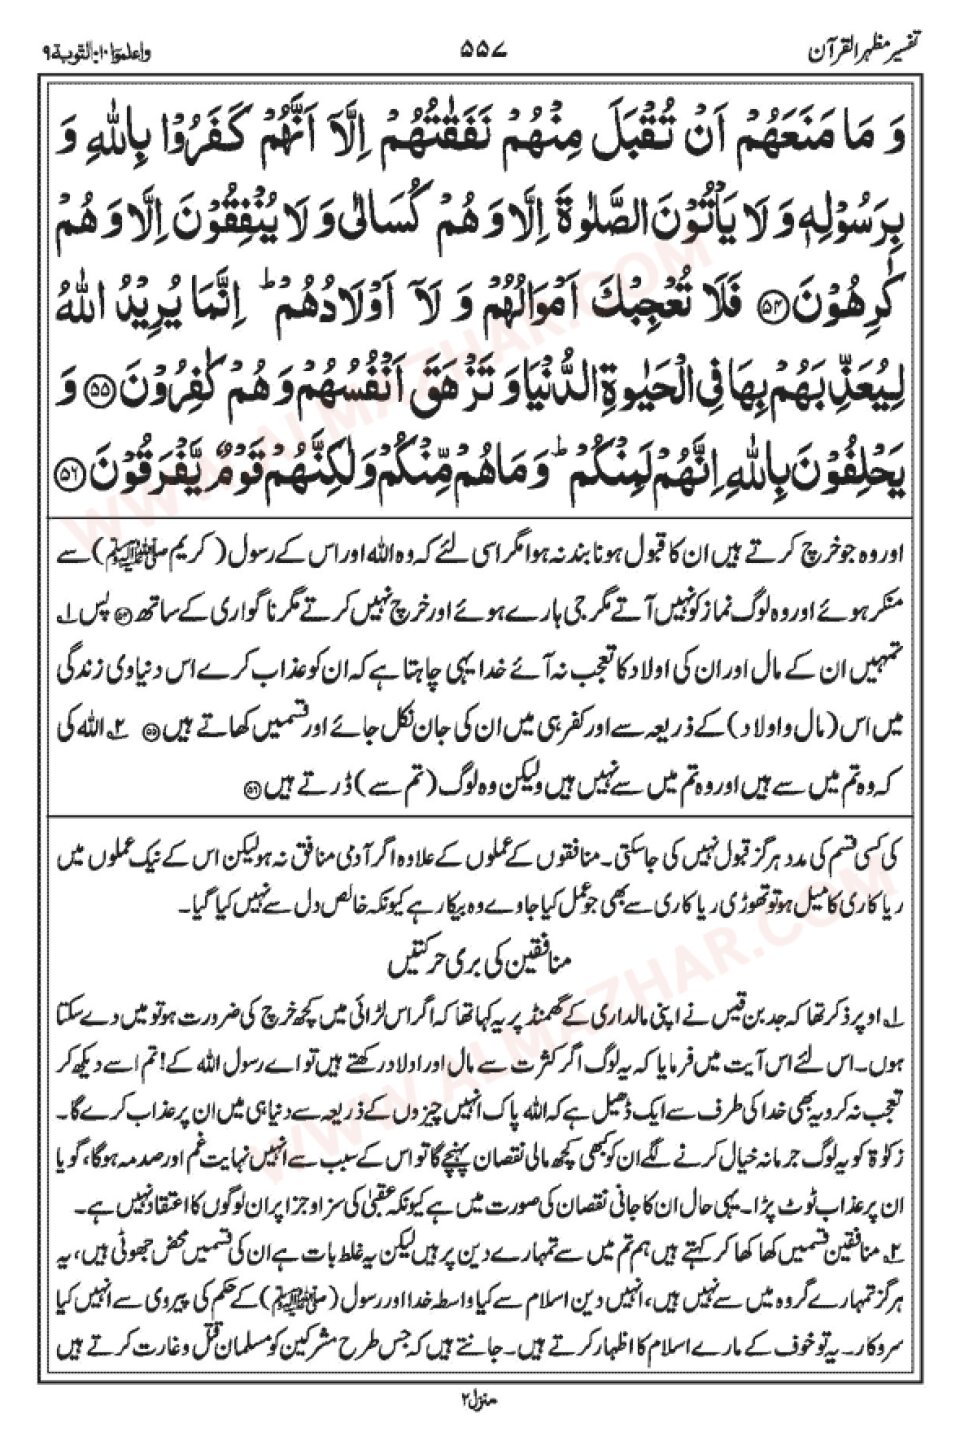 تفسیر مظہر القرآن ۵۵۷ واعلموا ۱۰: التوبۃ ۹
وَ مَا مَنَعَهُمْ اَنْ تُقْبَلَ مِنْهُمْ نَفَقٰتُهُمْ اِلَّاۤ اَنَّهُمْ كَفَرُوْا بِاللّٰهِ وَ
بِرَسُوْلِهٖ وَ لَا يَاْتُوْنَ الصَّلٰوةَ اِلَّا وَ هُمْ كُسَالٰى وَ لَا يُنْفِقُوْنَ اِلَّا وَ هُمْ
كٰرِهُوْنَ ﴿۵۴﴾ فَلَا تُعْجِبْكَ اَمْوَالُهُمْ وَ لَاۤ اَوْلَادُهُمْ ؕ اِنَّمَا يُرِيْدُ اللّٰهُ
لِيُعَذِّبَهُمْ بِهَا فِى الْحَيٰوةِ الدُّنْيَا وَ تَزْهَقَ اَنْفُسُهُمْ وَ هُمْ كٰفِرُوْنَ ﴿۵۵﴾ وَ
يَحْلِفُوْنَ بِاللّٰهِ اِنَّهُمْ لَمِنْكُمْ ؕ وَ مَا هُمْ مِّنْكُمْ وَ لٰكِنَّهُمْ قَوْمٌ يَّفْرَقُوْنَ ﴿۵۶﴾
اور وہ جو خرچ کرتے ہیں ان کا قبول ہونا بند نہ ہوا مگر اسی لئے کہ وہ اللہ اور اس کے رسول (کریم ﷺ) سے
منکر ہوئے اور وہ لوگ نماز کو نہیں آتے مگر جی ہارے ہوئے اور خرچ نہیں کرتے مگر ناگواری کے ساتھ ﴿۵۴﴾ پس ۱؎
تمہیں ان کے مال اور ان کی اولاد کا تعجب نہ آئے خدا یہی چاہتا ہے کہ ان کو عذاب کرے اس دنیاوی زندگی
میں اس (مال و اولاد) کے ذریعہ سے اور کفر ہی میں ان کی جان نکل جائے اور قسمیں کھاتے ہیں ﴿۵۵﴾ ۲؎ اللہ کی
کہ وہ تم میں سے ہیں اور وہ تم میں سے نہیں ہیں ولیکن وہ لوگ (تم سے) ڈرتے ہیں ﴿۵۶﴾
کی کسی قسم کی مدد ہرگز قبول نہیں کی جاسکتی۔ منافقوں کے عملوں کے علاوہ اگر آدمی منافق نہ ہو لیکن اس کے نیک عملوں میں
ریاکاری کا میل ہو تو تھوڑی ریاکاری سے بھی جو عمل کیا جاوے وہ بیکار ہے کیونکہ خالص دل سے نہیں کیا گیا۔
منافقین کی بری حرکتیں
۱؎ اوپر ذکر تھا کہ جد بن قیس نے اپنی مالداری کے گھمنڈ پر یہ کہا تھا کہ اگر اس لڑائی میں کچھ خرچ کی ضرورت ہو تو میں دے سکتا
ہوں۔ اس لئے اس آیت میں فرمایا کہ یہ لوگ اگر کثرت سے مال اور اولاد رکھتے ہیں تو اے رسول اللہ کے! تم اسے دیکھ کر
تعجب نہ کرو یہ بھی خدا کی طرف سے ایک ڈھیل ہے کہ اللہ پاک انہیں چیزوں کے ذریعہ سے دنیا ہی میں ان پر عذاب کرے گا۔
زکوٰۃ کو یہ لوگ جرمانہ خیال کرنے لگے ان کو کبھی کچھ مالی نقصان پہنچے گا تو اس کے سبب سے انہیں نہایت غم اور صدمہ ہوگا، گویا
ان پر عذاب ٹوٹ پڑا۔ یہی حال ان کا جانی نقصان کی صورت میں ہے کیونکہ عقبیٰ کی سزا و جزا پر ان لوگوں کا اعتقاد نہیں ہے۔
۲؎ منافقین قسمیں کھا کھا کر کہتے ہیں ہم تم میں سے تمہارے دین پر ہیں لیکن یہ غلط بات ہے ان کی قسمیں محض جھوٹی ہیں، یہ
ہرگز تمہارے گروہ میں سے نہیں ہیں، انہیں دین اسلام سے کیا واسطہ خدا اور رسول (ﷺ) کے حکم کی پیروی سے انہیں کیا
سروکار۔ یہ تو خوف کے مارے اسلام کا اظہار کرتے ہیں۔ جانتے ہیں کہ جس طرح مشرکین کو مسلمان قتل و غارت کرتے ہیں
منزل ۲
WWW.ALMAZHAR.COM
WWW.ALMAZHAR.COM